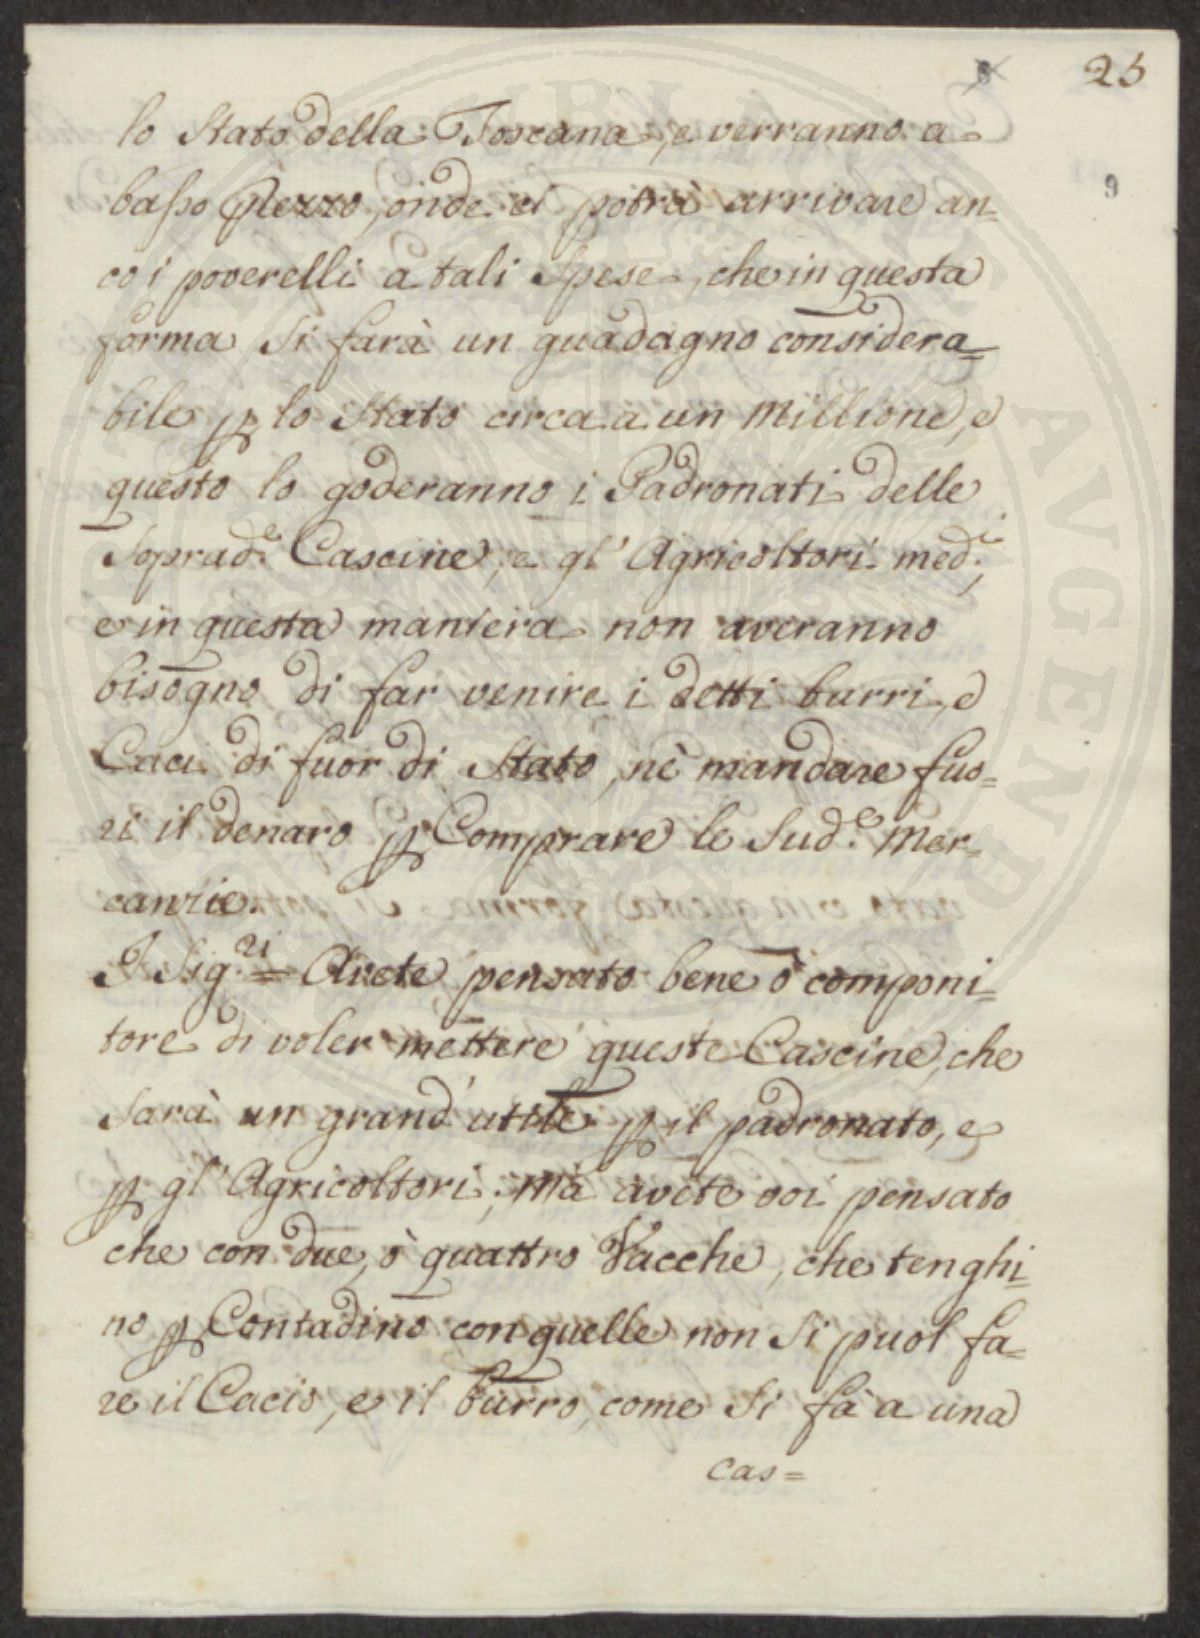 8 25
9
lo Stato della Toscana, e verranno a
basso prezzo, onde ci potrà arrivare an=
co i poverelli a tali Spese, che in questa
forma Si farà un guadagno considera=
bile ꝑ lo Stato circa a un Millione, e
questo lo goderanno i Padronati delle
Soprad.e Cascine, e gl' Agricoltori med.i;
e in questa maniera non averanno
bisogno di far venire i detti burri, e
Caci di fuor di Stato, nè mandare fuo=
ri il denaro ꝑ Comprare le Sud.e Mer=
canzie.
I Sig.ri = Avete pensato bene ò componi=
tore di voler mettere queste Cascine, che
Sarà un grand' utile ꝑ il padronato, e
ꝑ gl' Agricoltori; Mà avete voi pensato
che con due, ò quattro Vacche, che tenghi=
no ꝑ Contadino con quelle non Si puol fa=
re il Cacio, e il burro, come Si fà a una
cas=